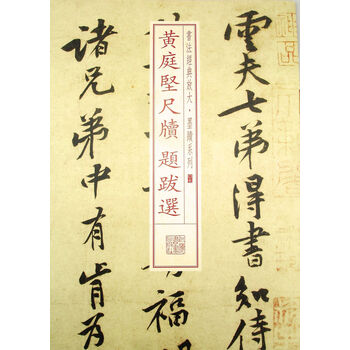 雲夫七弟得書知侍
書法經典放大·墨蹟系列
黃庭堅尺牘 題跋選
福
諸兄弟中有肯為